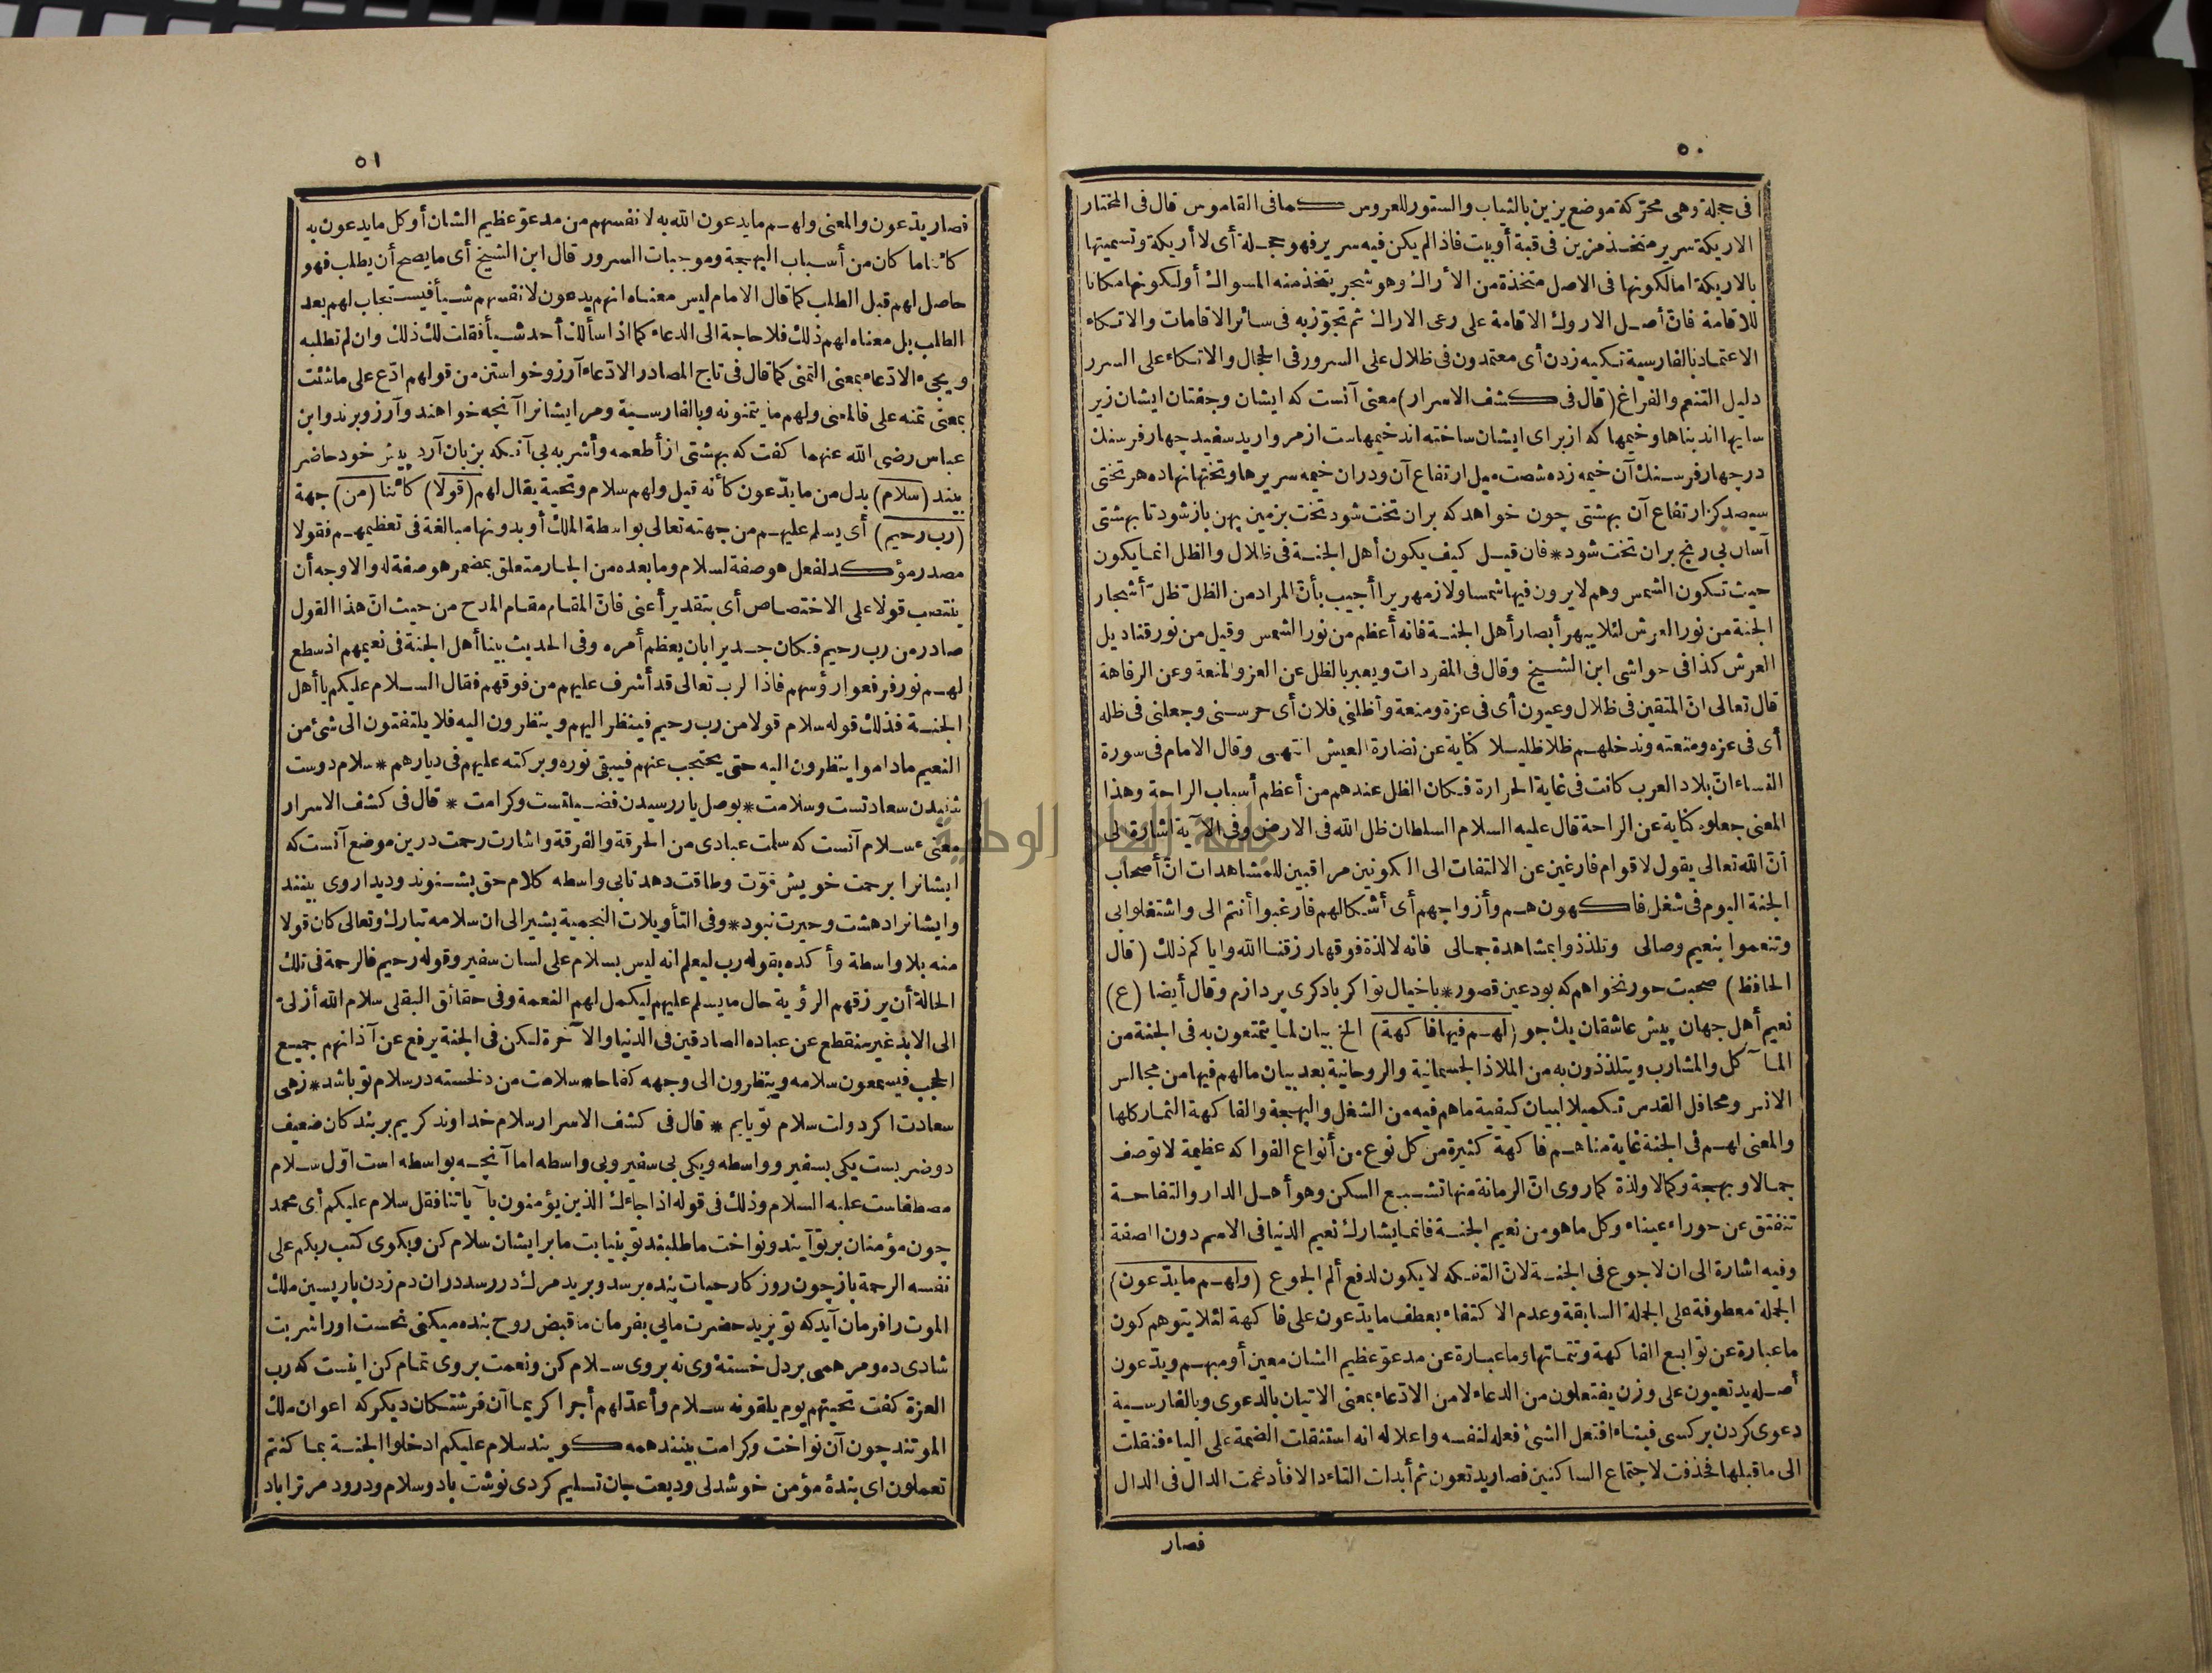 ٥٠
فى حجلة وهى محرّكة موضع يزين بالثياب والستور للعروس كما فى القاموس قال فى المختار
الاريكة سرير متخذ مزين فى قبة أو بيت فاذا لم يكن فيه سرير فهو حجلة أى لا أريكة وتسميتها
بالاريكة امالكونها فى الاصل متخذة من الأراك وهو شجر يتخذ منه المسواك أولكونها مكانا
للاقامة فانّ أصل الاروك الاقامة على رعى الاراك ثم تجوّز به فى سائر الاقامات والاتكاء
الاعتماد بالفارسية تكيه زدن أى معتمدون فى ظلال على السرور فى الحجال والاتكاء على السرر
دليل التنعم والفراغ (قال فى كشف الاسرار) معنى آنست كه ايشان وجفتان ايشان زير
سايها اند بناها وخيمها كه از براى ايشان ساخته اند خيمهاست از مرواريد سفيد چهار فرسنك
در چهار فرسنك آن خيمه زده شصت ميل ارتفاع آن ودران خيمه سريرها وتختها نهاده هر تختى
سيصد كز ارتفاع آن بهشتى چون خواهد كه بران تخت شود تخت بزمين پهن باز شود تا بهشتى
آسان بى رنج بران تخت شود* فان قيل كيف يكون أهل الجنة فى ظلال والظل انما يكون
حيث تكون الشمس وهم لا يرون فيها شمسا ولا زمهريرا أجيب بأنّ المراد من الظلّ ظلّ أشجار
الجنة من نور العرش لئلا يبهر أبصار أهل الجنة فانه أعظم من نور الشمس وقيل من نور قناديل
العرش كذا فى حواشى ابن الشيخ وقال فى المفردات ويعبر بالظل عن العز والمنعة وعن الرفاهة
قال تعالى انّ المتقين فى ظلال وعيون أى فى عزة ومنعة وأظلنى فلان أى حرسنى وجعلنى فى ظله
أى فى عزه ومنعته وندخلهم ظلا ظليلا كناية عن نضارة العيش انتهى وقال الامام فى سورة
النساء انّ بلاد العرب كانت فى غاية الحرارة فكان الظل عندهم من أعظم أسباب الراحة وهذا
المعنى جعلوه كناية عن الراحة قال عليه السلام السلطان ظل الله فى الارض وفى الآية اشارة الى
أنّ الله تعالى يقول لاقوام فارغين عن الالتفات الى الكونين مراقبين للمشاهدات انّ أصحاب
الجنة اليوم فى شغل فاكهون هم وأزواجهم أى أشكالهم فارغبوا أنتم الى واشتغلوا بى
وتنعموا بنعيم وصالى وتلذذوا بمشاهدة جمالى فانه لا لذة فوقها رزقنا الله واياكم ذلك (قال
الحافظ) صحبت حور نخواهم كه بود عين قصور* باخيال تو اكر با دكرى پردازم وقال أيضا (ع)
نعيم أهل جهان پيش عاشقان يك جو (لهم فيها فاكهة) الخ بيان لما يتمتعون به فى الجنة من
المآكل والمشارب ويتلذذون به من الملاذ الجسمانية والروحانية بعد بيان مالهم فيها من مجالس
الانس ومحافل القدس تكميلا لبيان كيفية ما هم فيه من الشغل والبهجة والفاكهة الثمار كلها
والمعنى لهم فى الجنة غاية مناهم فاكهة كثيرة من كل نوع من أنواع الفواكه عظيمة لا توصف
جمالا وبهجة وكمالا ولذة كما روى انّ الرمانة منها تشبع السكن وهو أهل الدار والتفاحة
تنفتق عن حوراء عيناء وكل ما هو من نعيم الجنة فانما يشارك نعيم الدنيا فى الاسم دون الصفة
وفيه اشارة الى ان لا جوع فى الجنة لانّ التفكه لا يكون لدفع ألم الجوع (ولهم ما يدّعون)
الجملة معطوفة على الجملة السابقة وعدم الاكتفاء بعطف ما يدّعون على فاكهة لئلا يتوهم كون
ما عبارة عن توابع الفاكهة وتتماتها وما عبارة عن مدعوّ عظيم الشان معين أو مبهم ويدّعون
أصله يدتعيون على وزن يفتعلون من الدعاء لا من الادّعاء بمعنى الاتيان بالدعوى وبالفارسية
دعوى كردن بر كسى فبناء افتعل الشئ فعله لنفسه واعلاله انه استثقلت الضمة على الياء فنقلت
الى ما قبلها فحذفت لاجتماع الساكنين فصار يدتعون ثم أبدلت التاء دالا فأدغمت الدال فى الدال
فصار
٥١
فصار يدّعون والمعنى ولهم ما يدعون الله به لانفسهم من مدعوّ عظيم الشان أو كل ما يدعون به
كائنا ما كان من أسباب البهجة وموجبات السرور قال ابن الشيخ أى ما يصح أن يطلب فهو
حاصل لهم قبل الطلب كما قال الامام ليس معناه انهم يدعون لانفسهم شيأ فيستجاب لهم بعد
الطلب بل معناه لهم ذلك فلا حاجة الى الدعاء كما اذا سألك أحد شيأ فقلت لك ذلك وان لم تطلبه
ويجىء الادّعاء بمعنى التمنى كما قال فى تاج المصادر الادّعاء آرزو خواستن من قولهم ادّع على ما شئت
بمعنى تمنه على فالمعنى ولهم ما يتمنونه وبالفارسية ومر ايشانرا آنچه خواهند وآرزو برند وابن
عباس رضى الله عنهما كفت كه بهشتى از أطعمه وأشربه بى آنكه بزبان آرد پيش خود حاضر
بيند (سلام) بدل من ما يدّعون كأنه قيل ولهم سلام وتحية يقال لهم (قولا) كائنا (من) جهة
(رب رحيم) أى يسلم عليهم من جهته تعالى بواسطة الملك أو بدونها مبالغة فى تعظيمهم فقولا
مصدر مؤكد لفعل هو صفة لسلام وما بعده من الجار متعلق بمضمر هو صفة له والاوجه أن
ينتصب قولا على الاختصاص أى بتقدير أعنى فانّ المقام مقام المدح من حيث انّ هذا القول
صادر من رب رحيم فكان جديرا بان يعظم أمره وفى الحديث بينا أهل الجنة فى نعيمهم اذ سطع
لهم نور فرفعوا رؤسهم فاذا الرب تعالى قد أشرف عليهم من فوقهم فقال السلام عليكم يا أهل
الجنة فذلك قوله سلام قولا من رب رحيم فينظر اليهم وينظرون اليه فلا يلتفتون الى شئ من
النعيم ما داموا ينظرون اليه حتى يحتجب عنهم فيبقى نوره وبركته عليهم فى ديارهم* سلام دوست
شنيدن سعادتست وسلامت* بوصل يار رسيدن فضيلتست وكرامت* قال فى كشف الاسرار
معنى سلام آنست كه سلمت عبادى من الحرقة والفرقة واشارت رحمت درين موضع آنست كه
ايشانرا برحمت خويش قوّت وطاقت دهد تا بى واسطه كلام حق بشنوند وديدار وى بينند
وايشانرا دهشت وحيرت نبود* وفى التأويلات النجمية يشير الى ان سلامه تبارك وتعالى كان قولا
منه بلا واسطة وأكده بقوله رب ليعلم انه ليس بسلام على لسان سفير وقوله رحيم فالرحمة فى تلك
الحالة أن يرزقهم الرؤية حال ما يسلم عليهم ليكمل لهم النعمة وفى حقائق البقلى سلام الله أزلىّ
الى الابد غير منقطع عن عباده الصادقين فى الدنيا والآخرة لكن فى الجنة يرفع عن آذانهم جميع
الحجب فيسمعون سلامه وينظرون الى وجهه كفاحا* سلامت من دلخسته در سلام تو باشد* زهى
سعادت اكر دولت سلام تو يابم* قال فى كشف الاسرار سلام خداوند كريم بر بندكان ضعيف
دو ضربست يكى بسفير وواسطه ويكى بى سفير وبى واسطه اما آنچه بواسطه است اوّل سلام
مصطفاست عليه السلام وذلك فى قوله اذا جاءك الذين يؤمنون بآياتنا فقل سلام عليكم أى محمد
چون مؤمنان بر تو آيند ونواخت ما طلبند تو بنيابت ما بر ايشان سلام كن وبكوى كتب ربكم على
نفسه الرحمة باز چون روزكار حيات بنده برسد وبريد مرك در رسد دران دم زدن بازپسين ملك
الموت را فرمان آيد كه تو بريد حضرت مايى بفرمان ما قبض روح بنده ميكنى نخست او را شربت
شادى ده ومرهمى بر دل خستهٔ وى نه بر وى سلام كن ونعمت بر وى تمام كن اينست كه رب
العزة كفت تحيتهم يوم يلقونه سلام وأعدّ لهم أجرا كريما آن فرشتكان ديكر كه اعوان ملك
الموتند چون آن نواخت وكرامت بينند همه كويند سلام عليكم ادخلوا الجنة بما كنتم
تعملون اى بندهٔ مؤمن خوشدلى وديعت جان تسليم كردى نوشت باد وسلام ودرود مر ترا باد